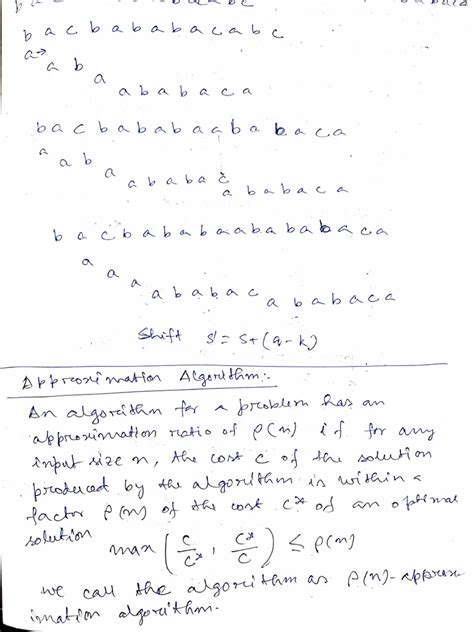 b a c b a b a b a c a b c
a→
a b
a
a b a b a c a
b a c b a b a b a a b a b a c a
a
a b
a
a b a b a c
a b a b a c a
b a c b a b a b a a b a b a b a c a
a
a
a
a b a b a c
a b a b a c a
Shift s' = s+(q-k)
Approximation Algorithm:-
An algorithm for a problem has an
approximation ratio of ρ(n) if for any
input size n, the cost c of the solution
produced by the algorithm is within a
factor ρ(n) of the cost c* of an optimal
solution
max ( c/c* , c*/c ) ≤ ρ(n)
we call the algorithm as ρ(n)-approx
imation algorithm.